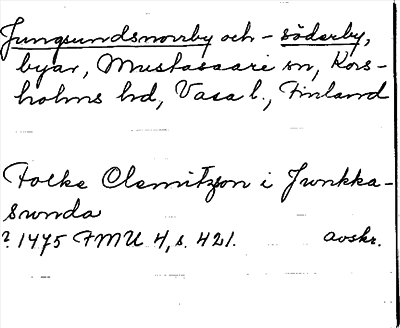 Jungsundsnorrby och - söderby,
byar, Mustasaari sn, Kors-
holms hd, Vasa l., Finland
Folke Clemitzson i Junkka-
sunda
? 1475 FMU 4, s. 421. avskr.